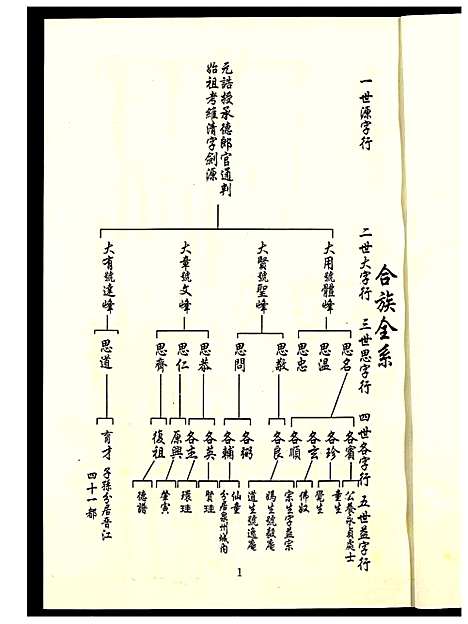 合族全系
一世源字行
二世大字行
三世思字行
四世各字行
五世益字行
元誥授承德郎官通判
始祖考維清字劍源
大用號體峰
大賢號聖峰
大章號文峰
大有號達峰
思名
思溫
思忠
思敬
思問
思恭
思仁
思齊
思道
各賓
各珍
各玄
各順
各良
各弼
各輔
各英
各主
原興
復祖
育才
子孫分居晉江
四十一都
公養永貞處士
童生
覺生
佛奴
宗生字益宗
媽生號毅庵
道生號逸庵
仙童
分居泉州城內
賢珪
環珪
瑩寅
德譜
1